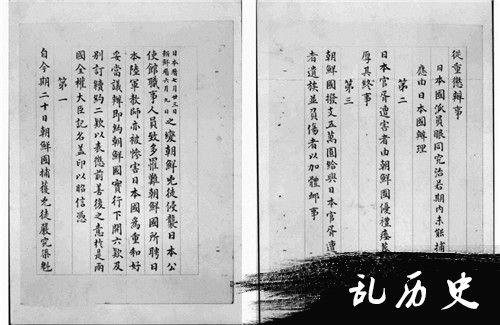 日本曆七月廿三日
朝鮮曆六月九日
之變朝鮮兇徒侵襲日本公
使館職事人員致多罹難朝鮮國所聘日
本陸軍教師亦被慘害日本國為重和好
妥當議辦即約朝鮮國實行下開六款及
別訂續約二款以表懲前善後之意於是兩
國全權大臣記名蓋印以昭信憑
第一
自今期二十日朝鮮國捕獲兇徒嚴究渠魁
從重懲辦事
日本國派員眼同究治若期內未能捕
應由日本國辦理
第二
日本官胥遭害者由朝鮮國優禮瘞
厚其終事
第三
朝鮮國撥支五萬圓給與日本官胥遭
者遺族並負傷者以加體卹事
乱历史